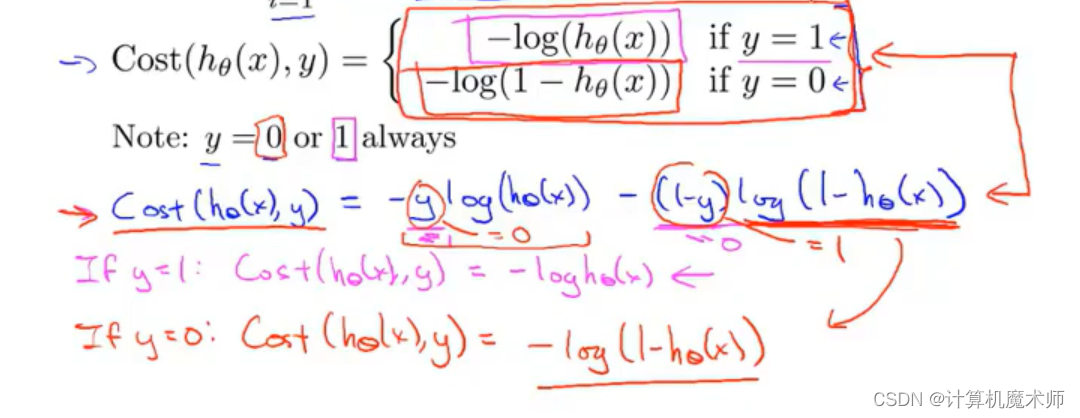 i=1
Cost(hθ(x), y) = { −log(hθ(x)) if y = 1
−log(1 − hθ(x)) if y = 0
Note: y = 0 or 1 always
Cost(hθ(x), y) = -y log(hθ(x)) - (1-y) log(1-hθ(x))
=1 =0 =0 =1
If y=1: Cost(hθ(x), y) = -log hθ(x)
If y=0: Cost(hθ(x), y) = -log(1-hθ(x))
CSDN @计算机魔术师